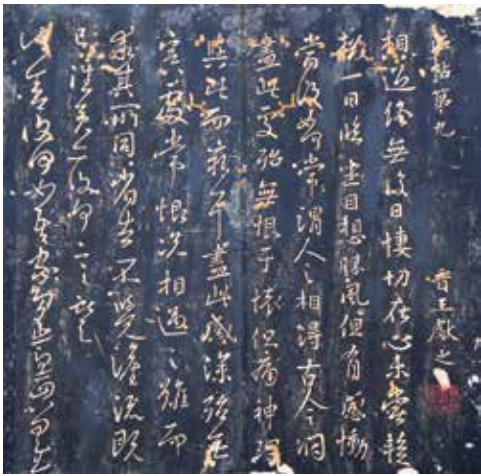 法帖第九 晉王獻之
相過終無復日悽切在心未嘗暫
掇一日臨坐目想勝風但有感慟
當復如何常謂人之相得古今洞
盡此處殆無恨于懷但痛神理
與此而窮耳盡此感深殆無
冥處常恨況相遇之難而
乖其所同省告不覺涕流既
已往矣亦復何言獻之